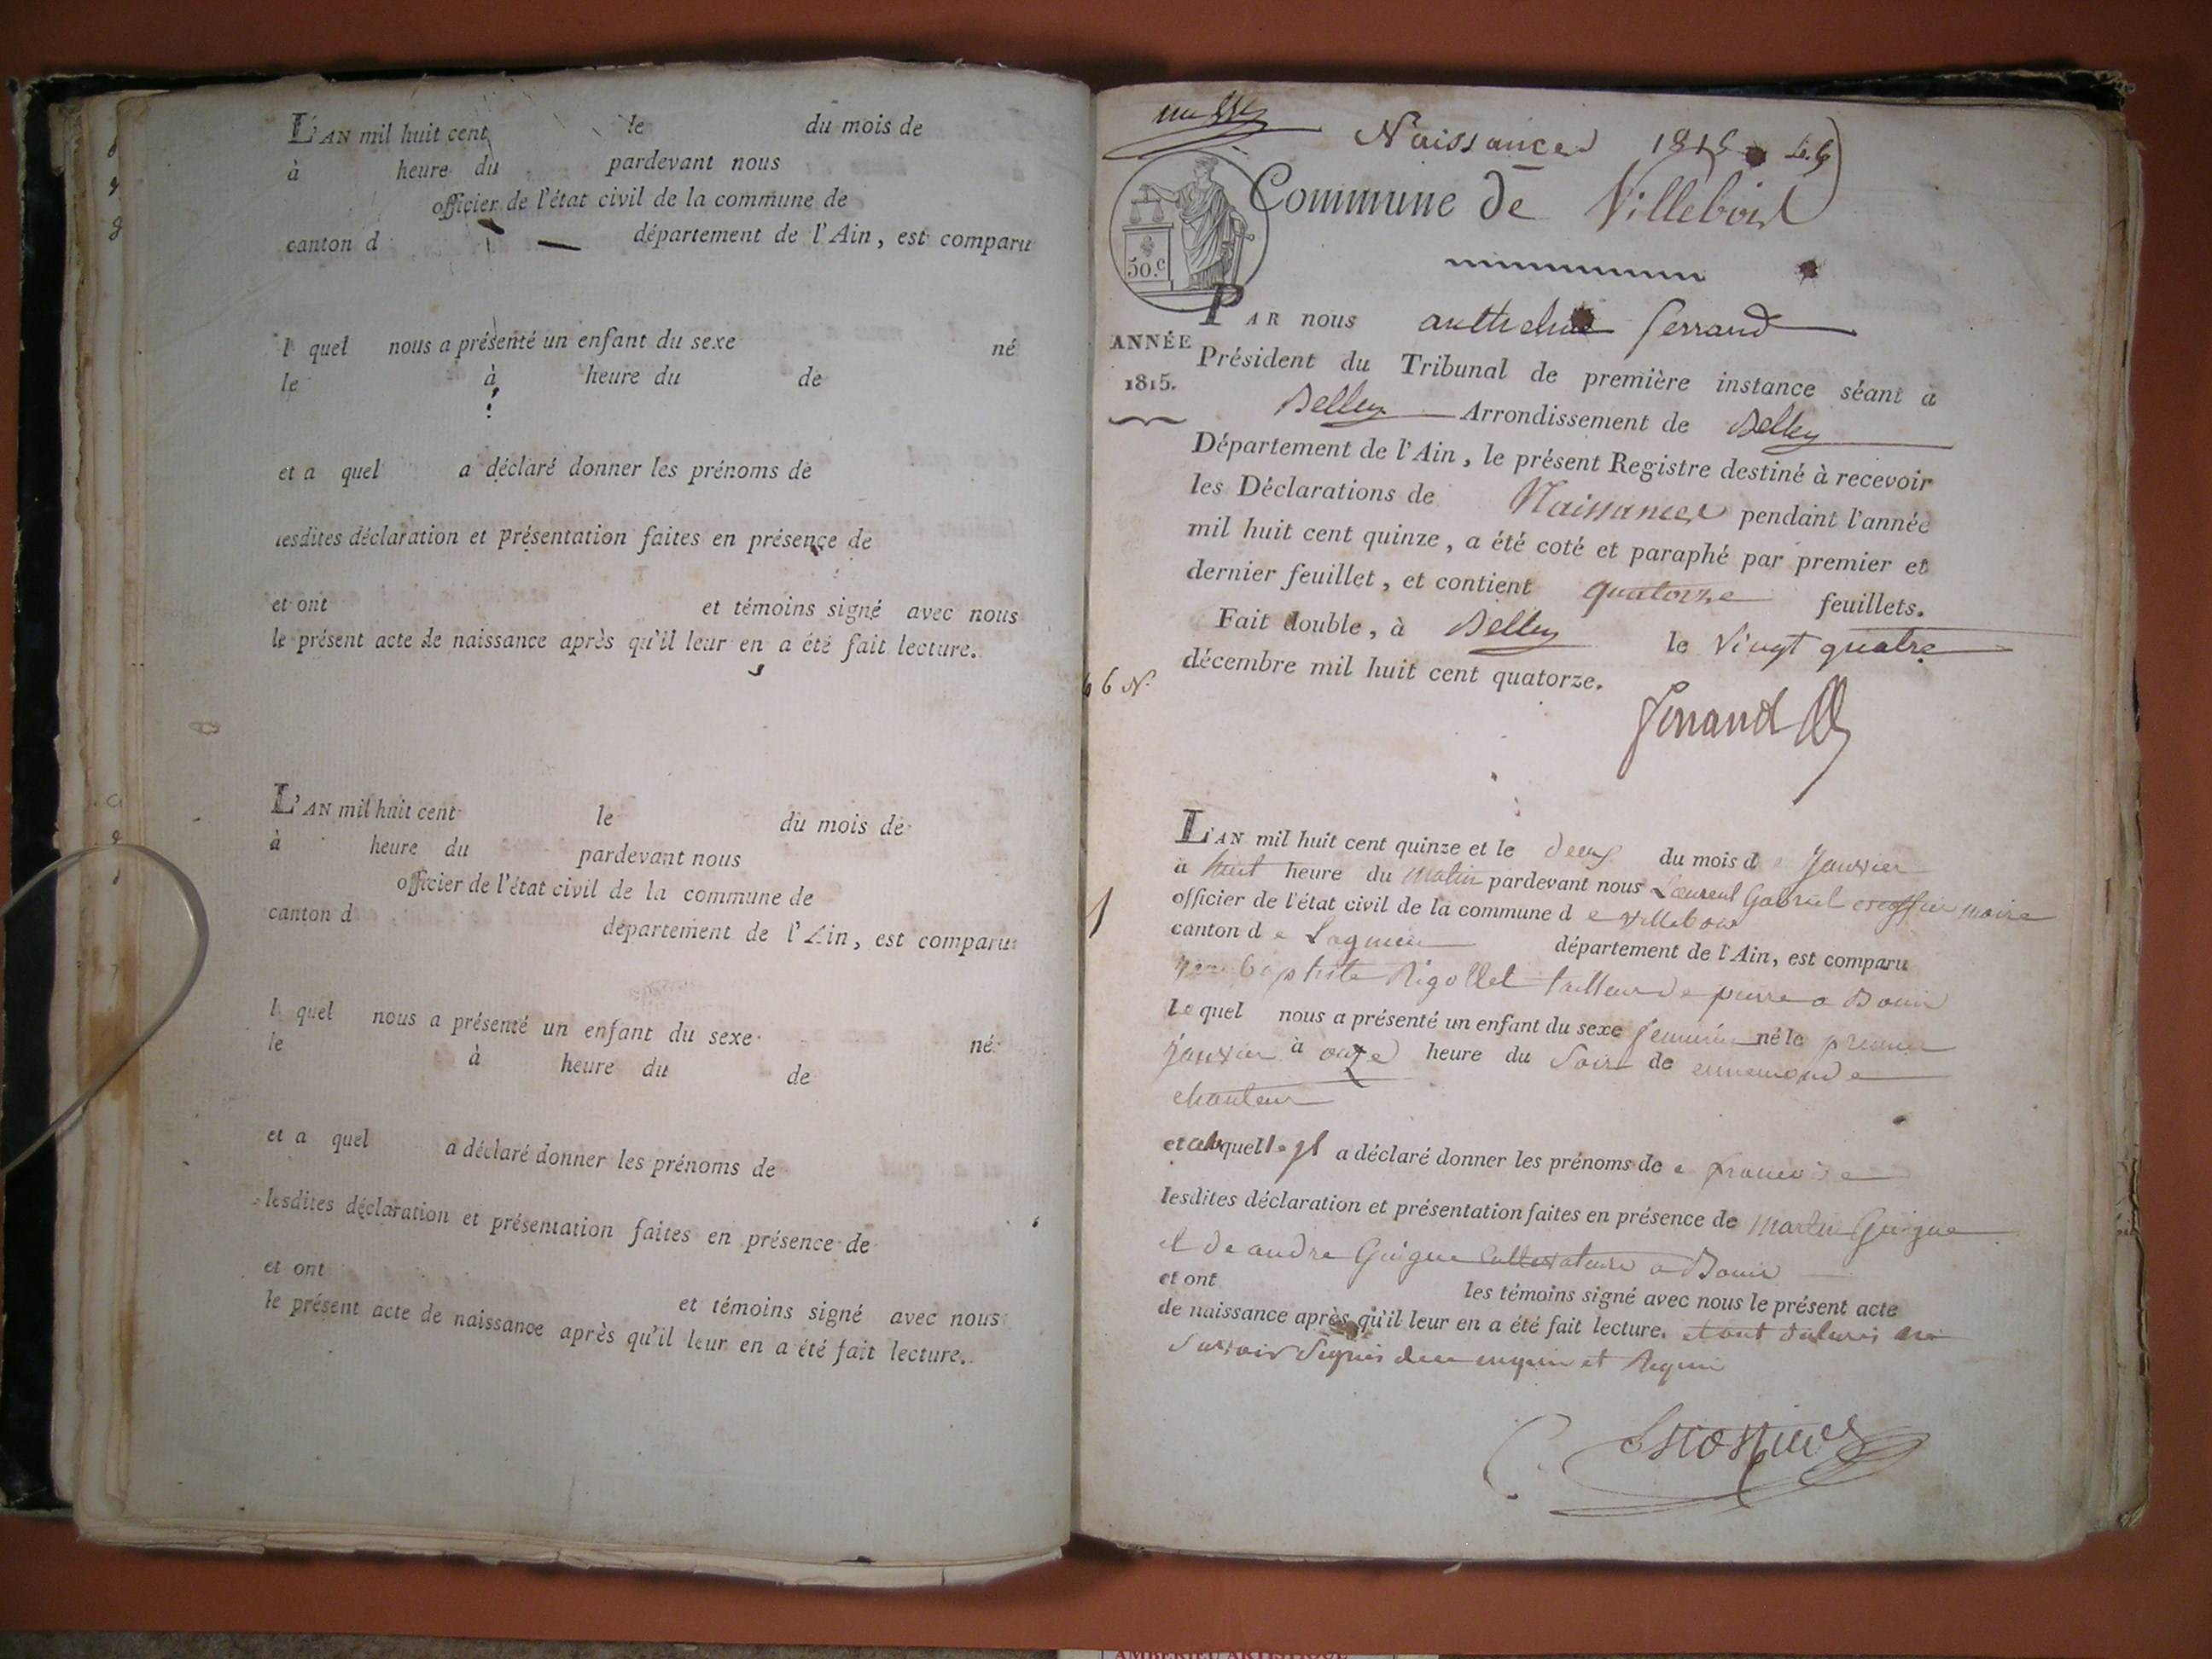 L'AN mil huit cent le du mois de
à heure du pardevant nous
officier de l'état civil de la commune de
canton d département de l'Ain, est comparu
l quel nous a présenté un enfant du sexe né
le à heure du de
et a quel a déclaré donner les prénoms de
lesdites déclaration et présentation faites en présence de
et ont et témoins signé avec nous
le présent acte de naissance après qu'il leur en a été fait lecture.
L'AN mil huit cent le du mois de
à heure du pardevant nous
officier de l'état civil de la commune de
canton d département de l'Ain, est comparu
l quel nous a présenté un enfant du sexe né
le à heure du de
et a quel a déclaré donner les prénoms de
lesdites déclaration et présentation faites en présence de
et ont et témoins signé avec nous
le présent acte de naissance après qu'il leur en a été fait lecture.
Naissances 1815
Commune de Villebois
50.c
PAR nous anthelme ferrand
ANNÉE
1815.
Président du Tribunal de première instance séant à
Belley Arrondissement de Belley
Département de l'Ain, le présent Registre destiné à recevoir
les Déclarations de Naissances pendant l'année
mil huit cent quinze, a été coté et paraphé par premier et
dernier feuillet, et contient quatorze feuillets.
Fait double, à Belley le vingt quatre
décembre mil huit cent quatorze.
6 N.
ferrand
L'AN mil huit cent quinze et le deux du mois de janvier
à huit heure du matin pardevant nous Laurent Gabriel escoffier maire
officier de l'état civil de la commune de villebois
1
canton de Lagnieu département de l'Ain, est comparu
jean baptiste Rigollet tailleur de pierre a Bouis
le quel nous a présenté un enfant du sexe feminin né le premier
janvier à onze heure du soir de ennemonde
chanteur
et a quel a déclaré donner les prénoms de francoise
lesdites déclaration et présentation faites en présence de martin Guigue
et de andre Guigue cultivateurs a Bouis
et ont les témoins signé avec nous le présent acte
de naissance après qu'il leur en a été fait lecture.
Escoffier